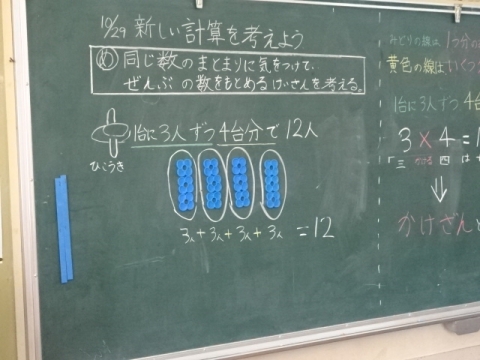 10/29 新しい計算を考えよう
め 同じ数のまとまりに気をつけて、
ぜんぶの数をもとめるけいさんを考える。
1台に3人ずつ4台分で12人
ひこうき
3人+3人+3人+3人 =12
みどりの線は 1つ分の
黄色の線は いくつ
1台に3人ずつ 4台
3×4=1
「三 かける 四 は
⇓
かけざん